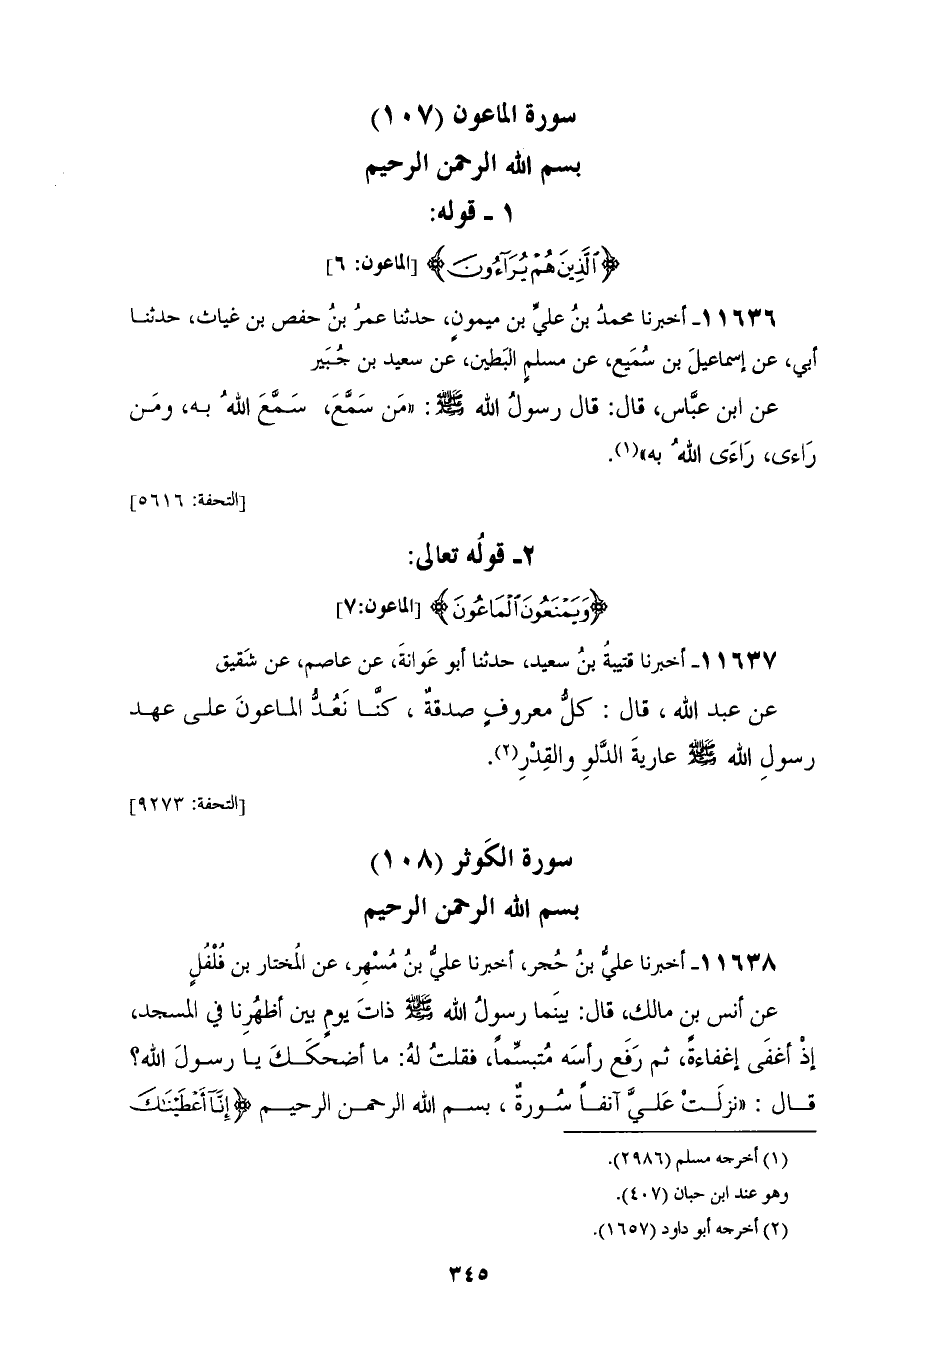 سورة الماعون (١٠٧)
بسم الله الرحمن الرحيم
١ ـ قوله:
﴿ٱلَّذِينَ هُمْ يُرَآءُونَ﴾ [الماعون: ٦]
١١٦٣٦ـ أخبرنا محمدُ بنُ عليِّ بن ميمونٍ، حدثنا عمرُ بنُ حفص بن غياث، حدثنا
أبي، عن إسماعيلَ بن سُمَيع، عن مسلمٍ البَطين، عن سعيد بن جُبَير
عن ابن عبَّاس، قال: قال رسولُ الله ﷺ: «مَن سَمَّعَ، سَمَّعَ اللهُ به، ومَن
رَاءى، رَاءَى اللهُ به»(١).
[التحفة: ٥٦١٦]
٢ـ قولُه تعالى:
﴿وَيَمْنَعُونَ ٱلْمَاعُونَ﴾ [الماعون:٧]
١١٦٣٧ـ أخبرنا قتيبةُ بنُ سعيد، حدثنا أبو عَوانةَ، عن عاصم، عن شَقيق
عن عبد الله ، قال : كلُّ معروفٍ صدقةٌ ، كنَّا نَعُدُّ الماعونَ على عهد
رسولِ الله ﷺ عاريةَ الدَّلوِ والقِدْرِ(٢).
[التحفة: ٩٢٧٣]
سورة الكَوثر (١٠٨)
بسم الله الرحمن الرحيم
١١٦٣٨ـ أخبرنا عليُّ بنُ حُجر، أخبرنا عليُّ بنُ مُسْهِر، عن المُختار بن فُلْفُلٍ
عن أنس بن مالك، قال: بينَما رسولُ الله ﷺ ذاتَ يومٍ بين أظهُرِنا في المسجد،
إذْ أغفَى إغفاءةً، ثم رَفَع رأسَه مُتبسِّماً، فقلتُ لهُ: ما أضحكَكَ يا رسولَ الله؟
قال : «نزلَتْ عَليَّ آنفاً سُورةٌ ، بسم الله الرحمن الرحيم ﴿إِنَّآ أَعْطَيْنَٰكَ
(١) أخرجه مسلم (٢٩٨٦).
وهو عند ابن حبان (٤٠٧).
(٢) أخرجه أبو داود (١٦٥٧).
٣٤٥